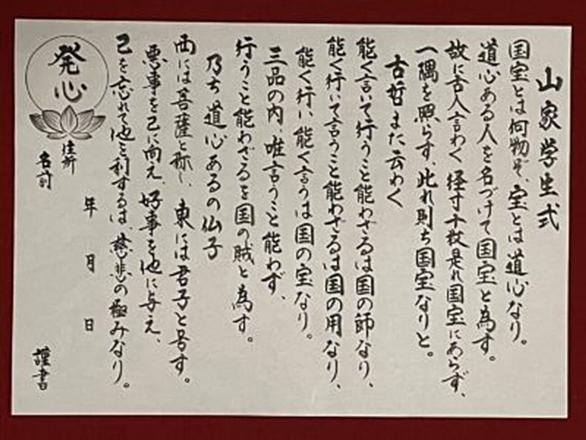 山家学生式
国宝とは何物ぞ、宝とは道心なり。
道心ある人を名づけて国宝と為す。
故に古人言わく、径寸十枚是れ国宝にあらず、
一隅を照らす、此れ則ち国宝なりと。
古哲また云わく
能く言いて行うこと能わざるは国の師なり、
能く行いて言うこと能わざるは国の用なり、
能く行い、能く言うは国の宝なり。
三品の内、唯言うこと能わず、
行うこと能わざるを国の賊と為す。
乃ち道心あるの仏子
西には菩薩と称し、東には君子と号す。
悪事を己に向え、好事を他に与え、
己を忘れて他を利するは、慈悲の極みなり。
発心
住所
名前
年 月 日
謹書